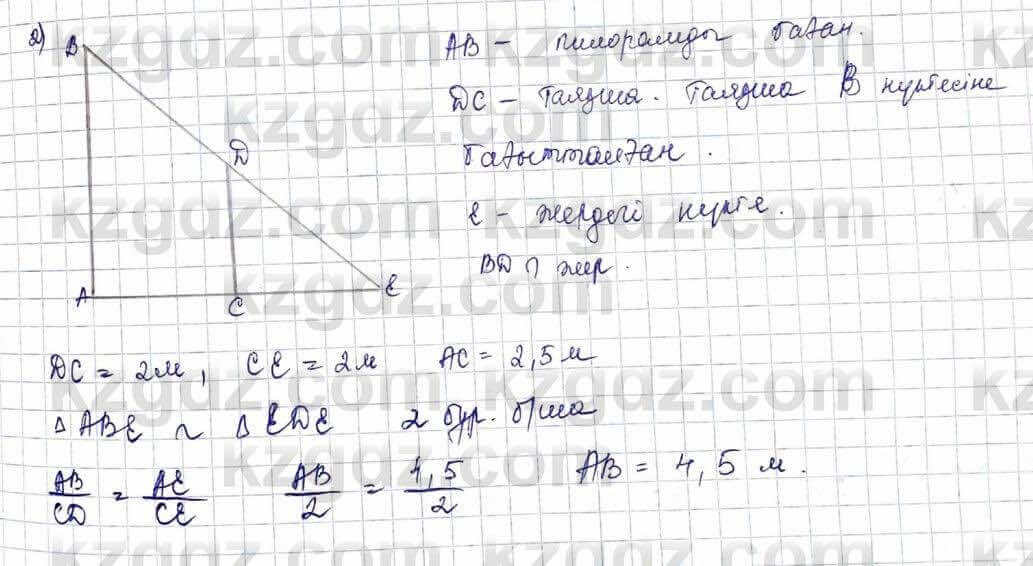 2)
B
AB – пилорамды баған.
DC – Таяқша. Таяқша B нүктесіне
бағытталған.
D
E – жердегі нүкте.
BD ∩ жер.
A C E
DC = 2м, CE = 2м AC = 2,5м
△ABE ~ △EDE 2 бұр. б/ша
AB/CD = AE/CE AB/2 = 4,5/2 AB = 4,5 м.
kzgdz.com